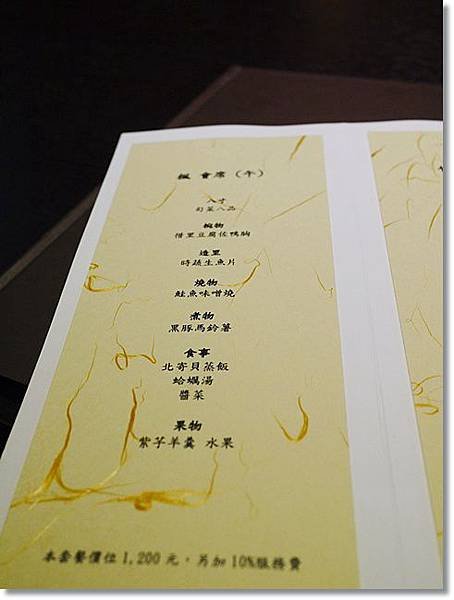 楓 會席 (午)
八寸
旬菜八品
椀物
惜里豆腐佐鴨胸
造里
時蔬生魚片
燒物
鮭魚味噌燒
煮物
黑豚馬鈴薯
食事
北寄貝蒸飯
蛤蠣湯
醬菜
果物
紫芋羊羹 水果
本套餐價位1,200元，另加10%服務費